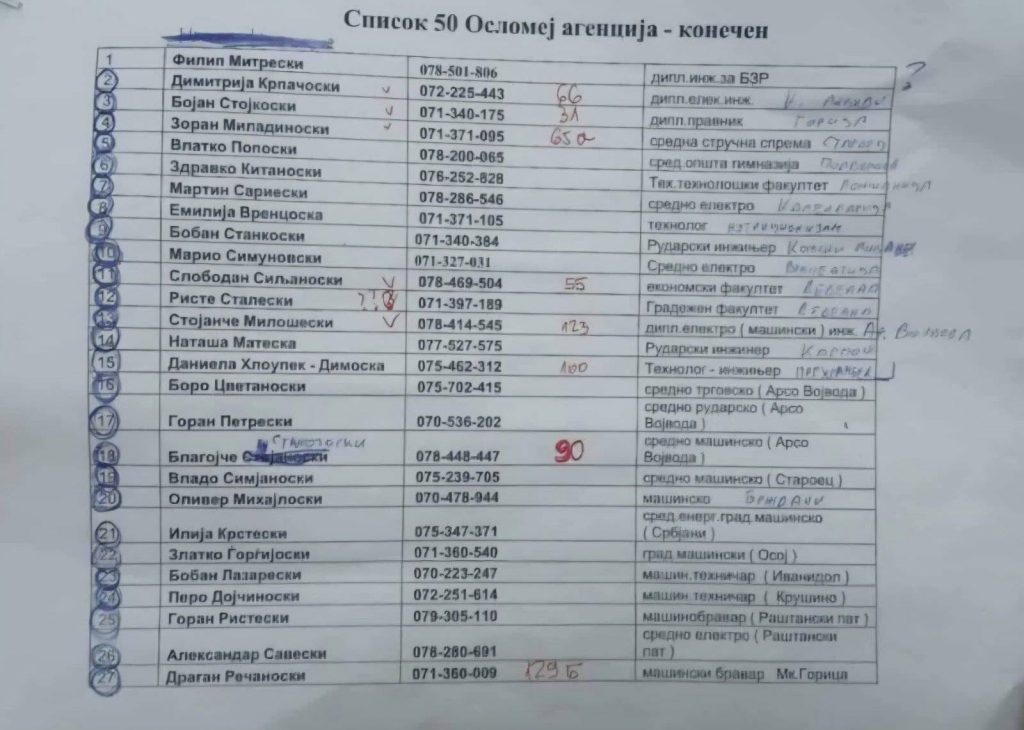 Список 50 Осломеј агенција - конечен
1 Филип Митрески 078-501-806 дипл.инж.за БЗР ?
2 Димитрија Крпачоски 072-225-443 66 дипл.елек.инж.
3 Бојан Стојкоски 071-340-175 31 дипл.правник
4 Зоран Миладиноски 071-371-095 65а средна стручна спрема
5 Влатко Попоски 078-200-065 сред.општа гимназија
6 Здравко Китаноски 076-252-828 Тех.технолошки факултет
7 Мартин Сариески 078-286-546 средно електро
8 Емилија Вренцоска 071-371-105 технолог
9 Бобан Станкоски 071-340-384 Рударски инжињер
10 Марио Симуновски 071-327-031 Средно електро
11 Слободан Сиљаноски 078-469-504 55 економски факултет
12 Ристе Сталески ??? 071-397-189 Градежен факултет
13 Стојанче Милошески 078-414-545 123 дипл.електро ( машински ) инж.
14 Наташа Матеска 077-527-575 Рударски инжинер
15 Даниела Хлоупек - Димоска 075-462-312 100 Технолог - инжињер
16 Боро Цветаноски 075-702-415 средно трговско ( Арсо Војвода )
17 Горан Петрески 070-536-202 средно рударско ( Арсо
Војвода )
18 Благојче 078-448-447 90 средно машинско ( Арсо
Војвода )
19 Владо Симјаноски 075-239-705 средно машинско ( Староец )
20 Оливер Михајлоски 070-478-944 машинско
21 Илија Крстески 075-347-371 сред.енерг.град.машинско
( Србјани )
22 Златко Ѓорѓијоски 071-360-540 град машински ( Осој )
23 Бобан Лазарески 070-223-247 машин.техничар ( Иванидол )
24 Перо Дојчиноски 072-251-614 машин техничар ( Крушино )
25 Горан Ристески 079-305-110 машинобравар ( Раштански пат )
26 Александар Савески 078-280-691 средно електро ( Раштански
пат )
27 Драган Речаноски 071-360-009 129 Б машински бравар Мк.Горица